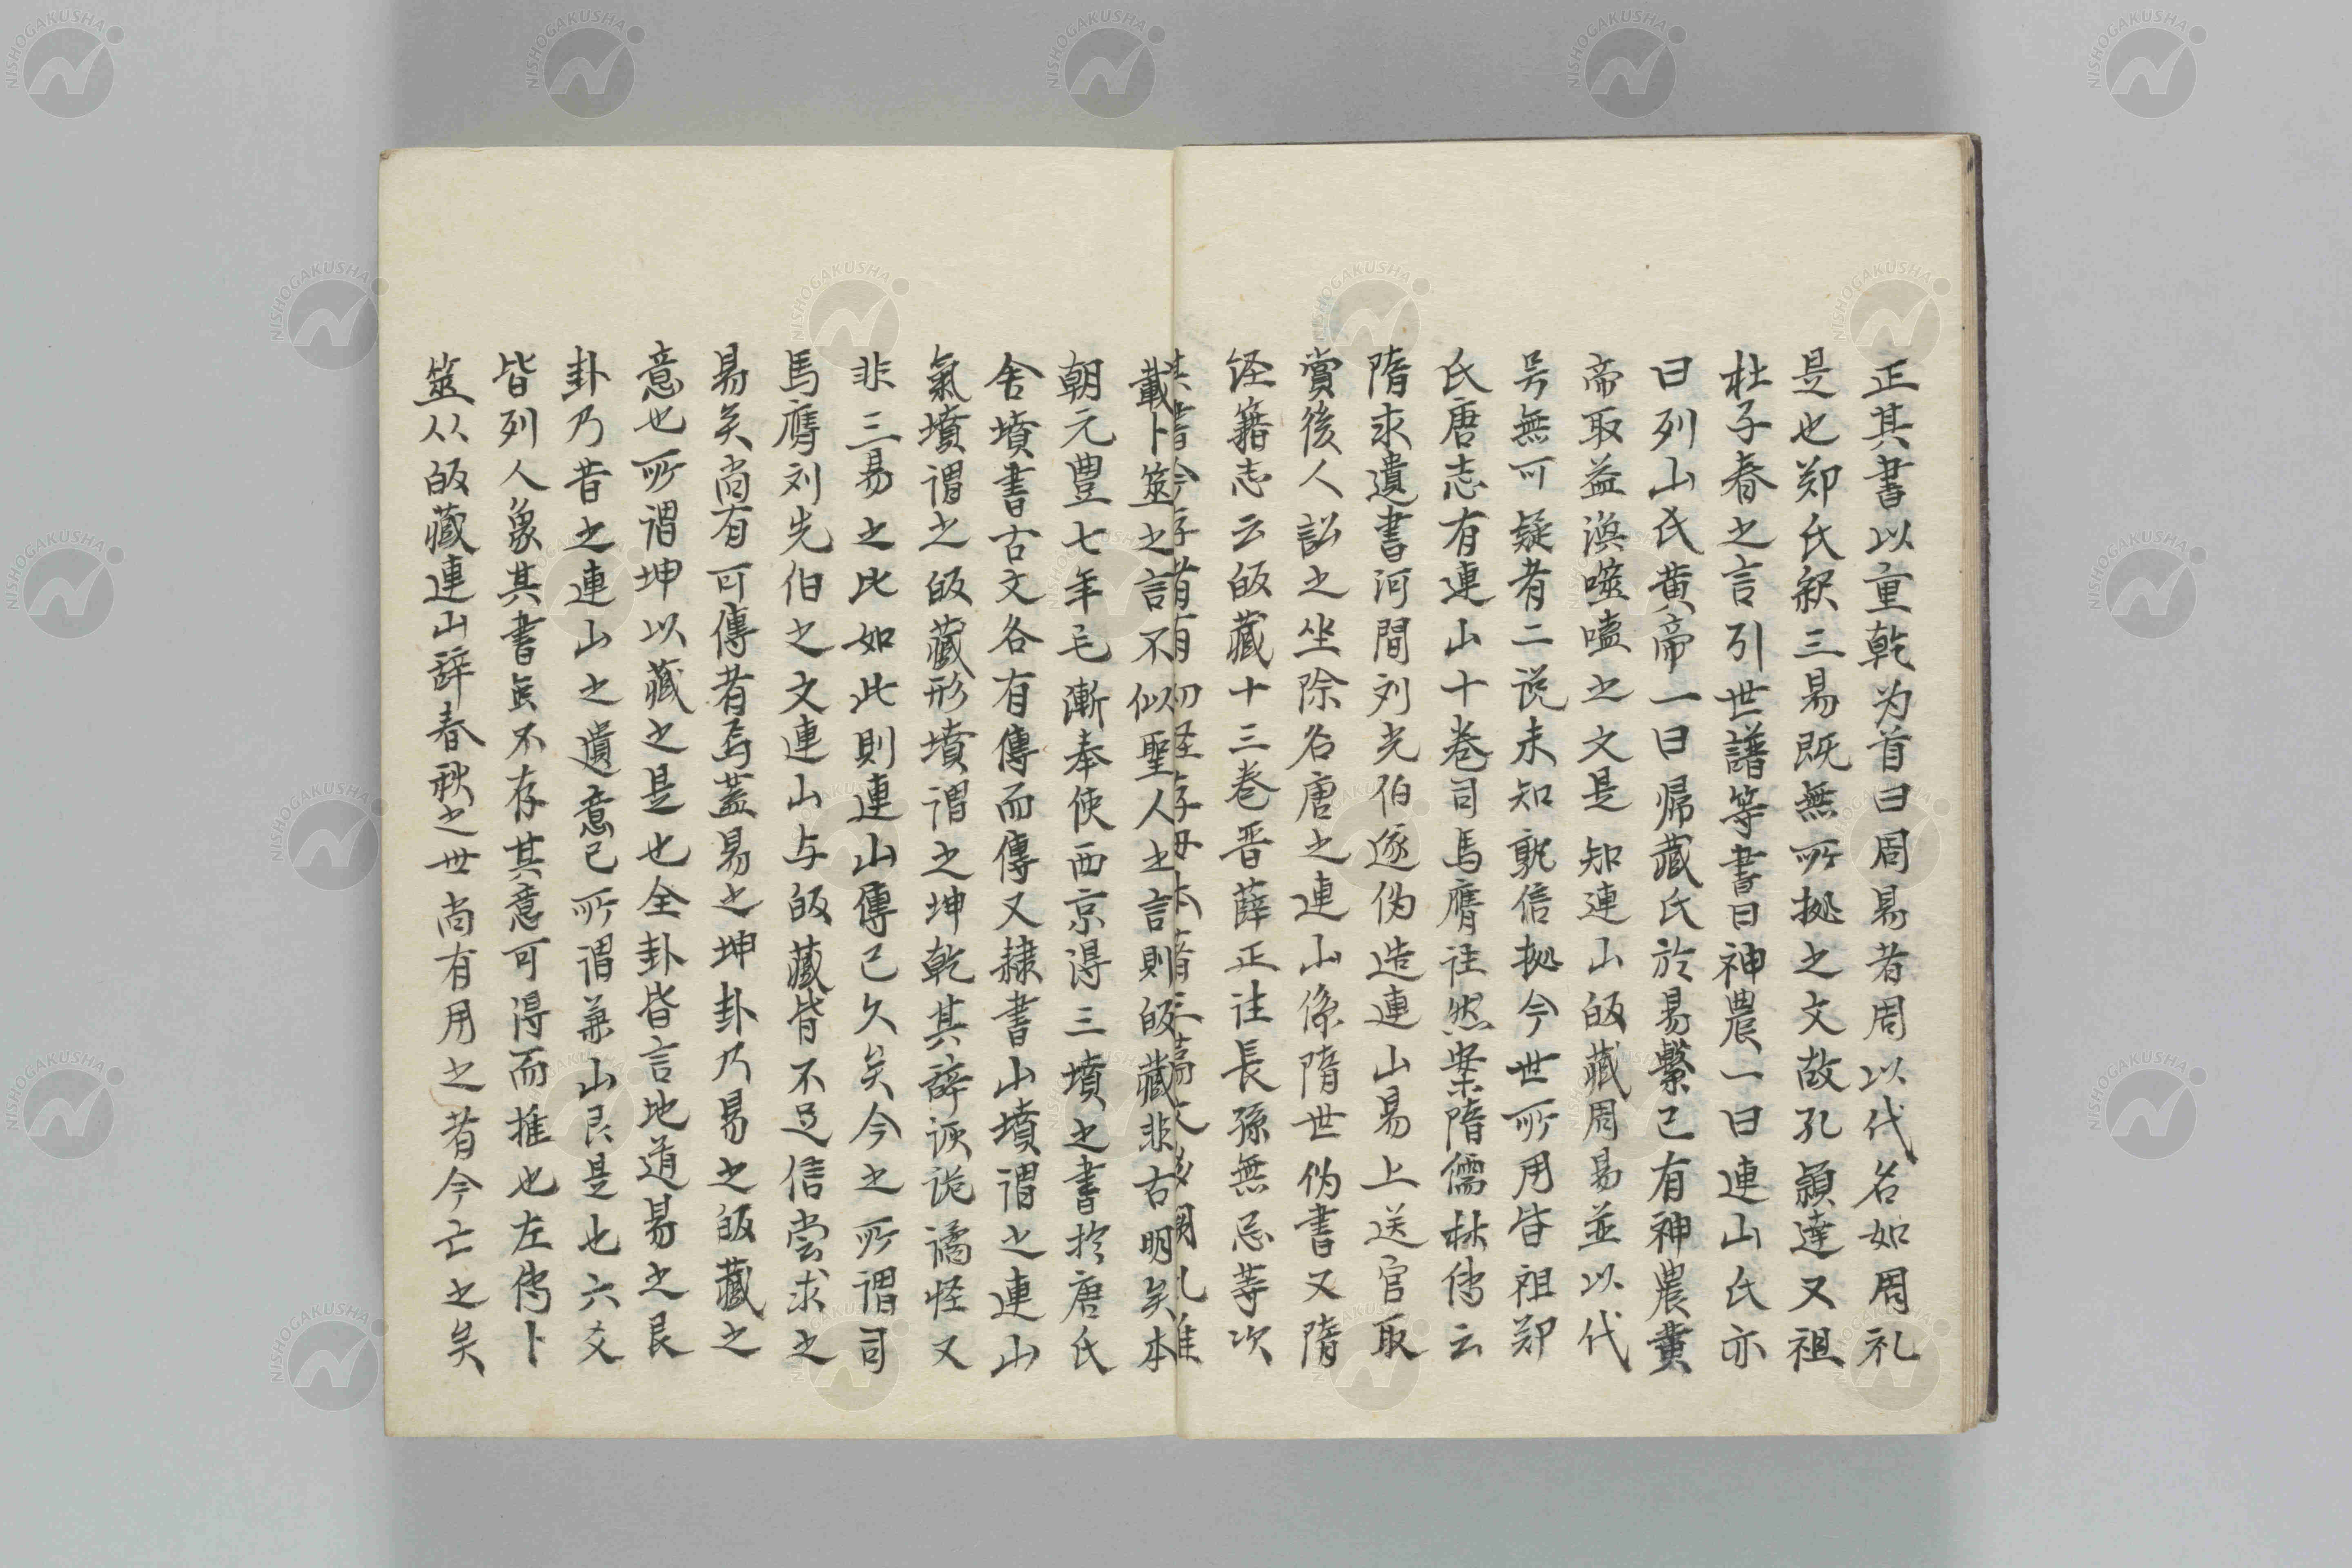 正其書以重乾为首曰周易者周以代名如周礼
是也郑氏釈三易既無所拠之文故孔穎達又祖
杜子春之言引世譜等書曰神農一曰連山氏亦
曰列山氏黄帝一曰帰藏氏於易繋已有神農黄
帝取益渙噬嗑之文是知連山皈藏周易並以代
号無可疑者二説未知孰信拠今世所用皆祖郑
氏唐志有連山十巻司馬膺注然案隋儒林传云
隋求遺書河間刘光伯遂伪造連山易上送官取
賞後人訟之坐除名唐之連山係隋世伪書又隋
经籍志云皈藏十三巻晋薛正注長孫無忌等次
書今存者有初经存母本蓍三篇文多闕乱雅
載卜筮之言不似聖人之言則皈藏非古明矣本
朝元豊七年毛漸奉使西京得三墳之書於唐氏
舎墳書古文各有傳而傳又隷書山墳謂之連山
氣墳謂之皈藏形墳謂之坤乾其辞诙诡譎怪又
非三易之比如此則連山傳已久矣今之所謂司
馬膺刘先伯之文連山与皈藏皆不足信尝求之
易矣尚有可傳者焉蓋易之坤卦乃易之皈藏之
意也所谓坤以藏之是也全卦皆言地道易之艮
卦乃昔之連山之遺意已所谓兼山艮是也六爻
皆列人象其書虽不存其意可得而推也左传卜
筮以皈藏連山辞春秋之世尚有用之者今亡之矣
NISHOGAKUSHA